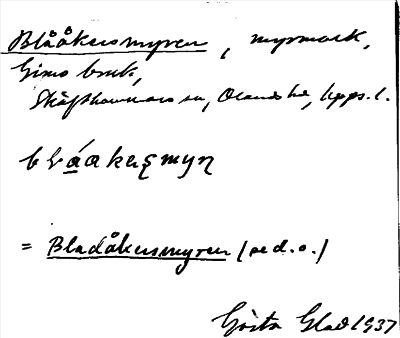 Blååkersmyren, myrmark,
Gimo bruk,
Skäfthammars sn, Olands hd, Upps. l.
blåakeʂmyɳ
= Bladåkersmyren (se d.o.)
Gösta Glad 1937